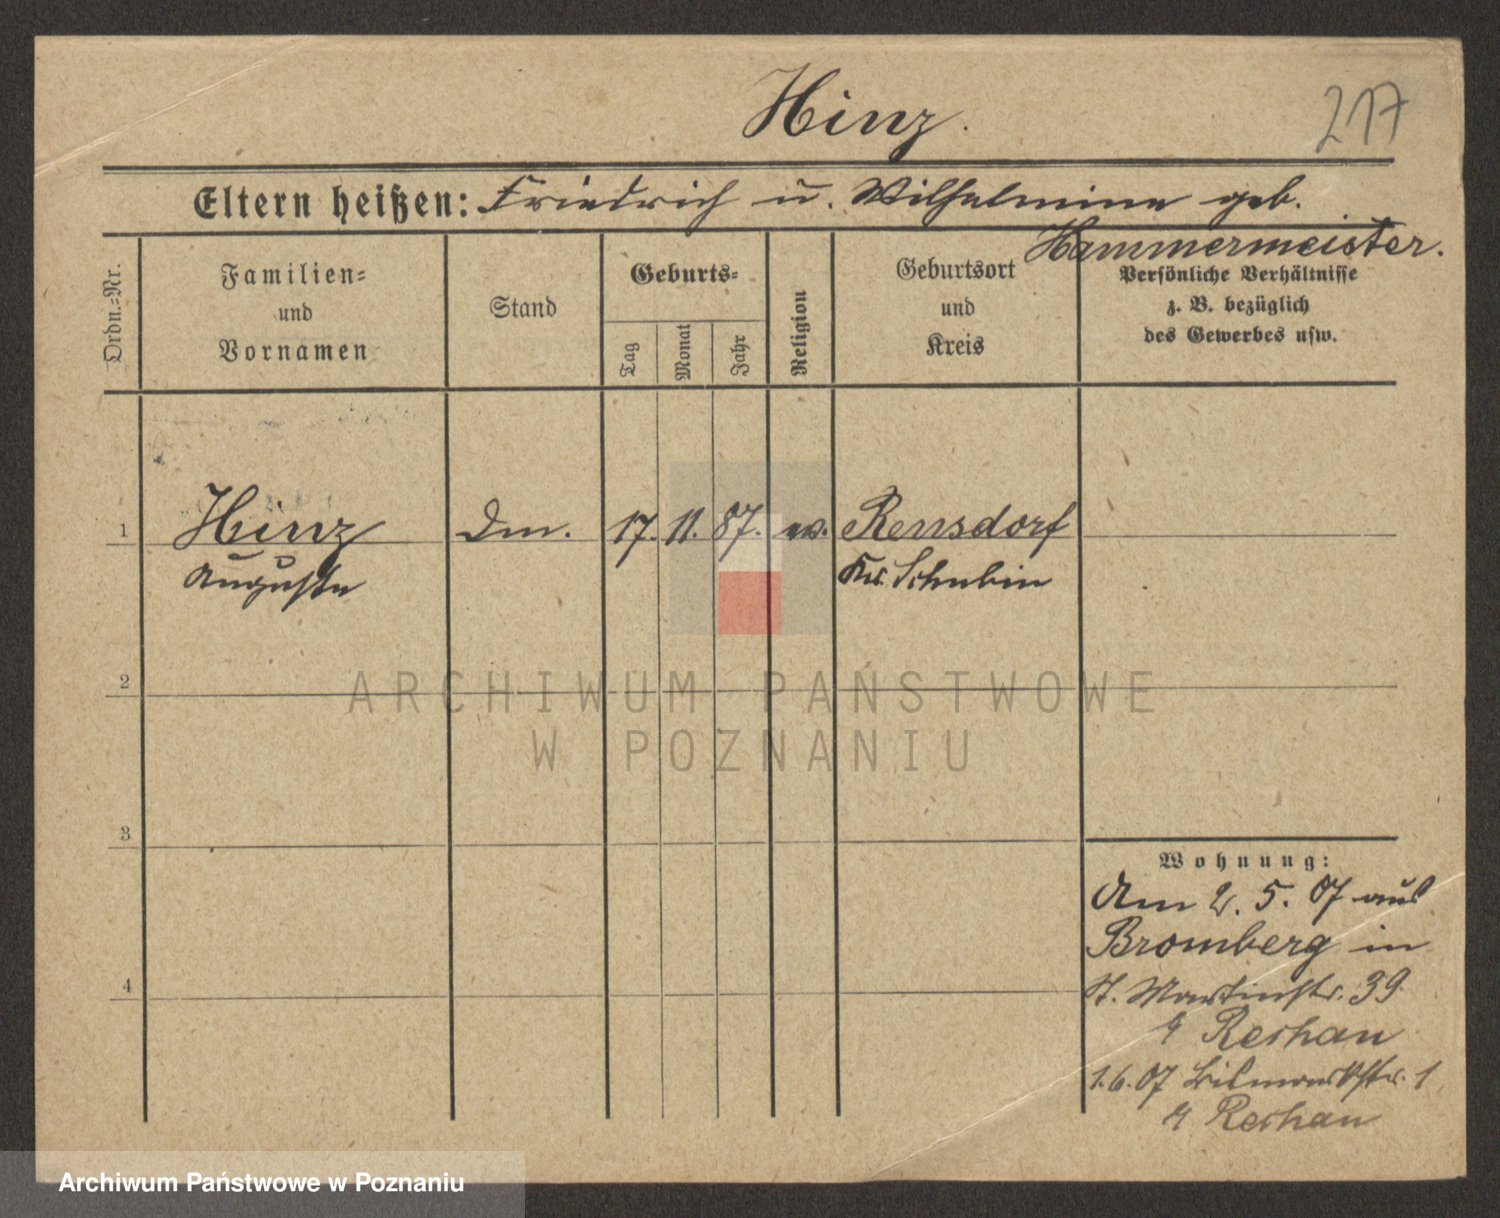 Hinz.
217
Eltern heißen: Friedrich u. Wilhelmine geb.
Hammermeister.
Ordn.=Nr.
Familien=
und
Vornamen
Stand
Geburts=
Tag
Monat
Jahr
Religion
Geburtsort
und
Kreis
Persönliche Verhältnisse
z. B. bezüglich
des Gewerbes usw.
1
Hinz
Auguste
17. 11. 87. ev.
Rensdorf
Kr. Schubin
2
3
4
Wohnung:
Am 2. 5. 07 aus
Bromberg in
St. Martinstr. 39
Reshau
1.6.07 Bismarckstr. 1
Reshau
ARCHIWUM PAŃSTWOWE
W POZNANIU
Archiwum Państwowe w Poznaniu